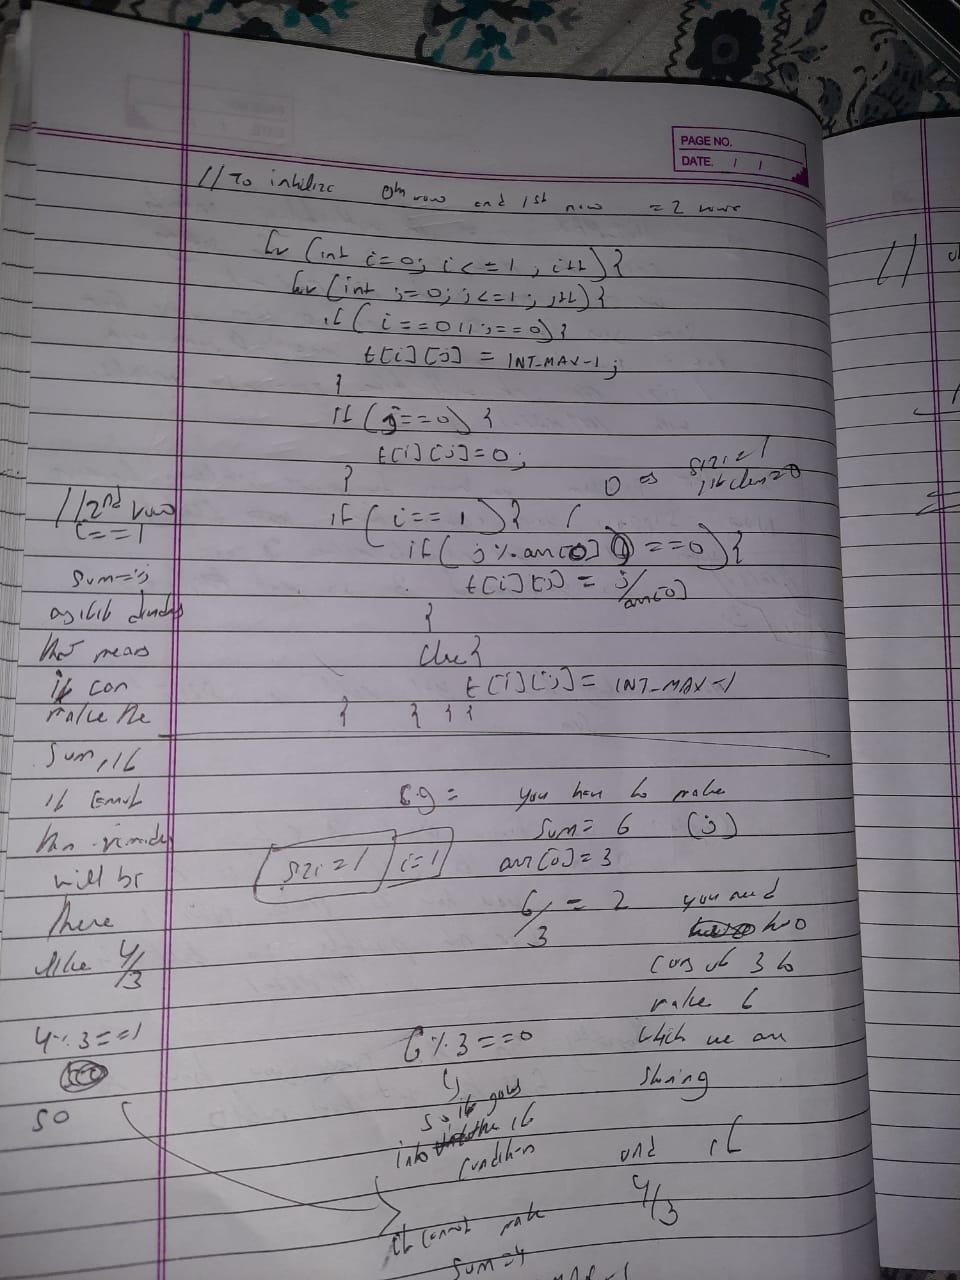 PAGE NO.
DATE. / /
// To initilize 0th row and 1st row = 2 rows
for (int i=0; i<=1; i++) {
for (int j=0; j<=1; j++) {
if (i==0 || j==0) {
t[i][j] = INT_MAX-1;
}
if (j==0) {
t[i][j]=0;
}
0 => size=1
// 2nd row
i==1
if (i==1) {
if (j % arr[0] ==0) {
t[i][j] = j/arr[0]
}
else {
t[i][j] = INT_MAX-1
} } } }
sum=j
as it is divides
that means
it can
make the
sum, if
it cannot
then reminder
will be
there
like 4/3
4%3==1
so
eg = you have to make
sum= 6 (j)
size=1 i=1 arr[0]=3
6/3 = 2 you need
two
coins of 3 to
make 6
6%3==0 which we are
storing
so it goes
into the if
condition
and if
4/3
it cannot make
sum=4